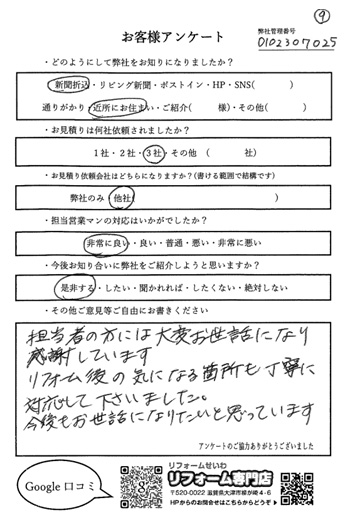 ⑨
お客様アンケート
弊社管理番号
0102307025
・どのようにして弊社をお知りになりましたか？
新聞折込・リビング新聞・ポストイン・HP・SNS(　　　)
通りがかり・近所にお住まい・ご紹介(　　様)・その他(　　　)
・お見積りは何社依頼されましたか？
1社・2社・3社・その他　(　　　社)
・お見積り依頼会社はどちらになりますか？(書ける範囲で結構です)
弊社のみ・他社(　　　)
・担当営業マンの対応はいかがでしたか？
非常に良い・良い・普通・悪い・非常に悪い
・今後お知り合いに弊社をご紹介しようと思いますか？
是非する・したい・聞かれれば・したくない・絶対しない
・その他ご意見等ご自由にお書きください
担当者の方には大変お世話になり
感謝しています
リフォーム後の気になる箇所も丁寧に
対応して下さいました。
今後もお世話になりたいと思っています
アンケートのご協力ありがとうございました
Google 口コミ
リフォームせいわ
リフォーム専門店
〒520-0022 滋賀県大津市柳が崎4-6
HPからのお問合せはこちらからどうぞ